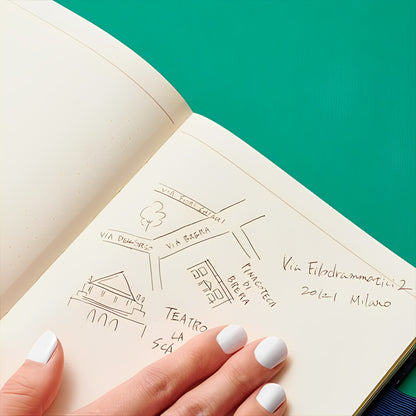 VIA FIORI CHIARI
VIA DELL'ORSO
VIA BRERA
PINACOTECA
DI
BRERA
TEATRO
LA
SCA
Via Filodrammatici 2
20121 Milano